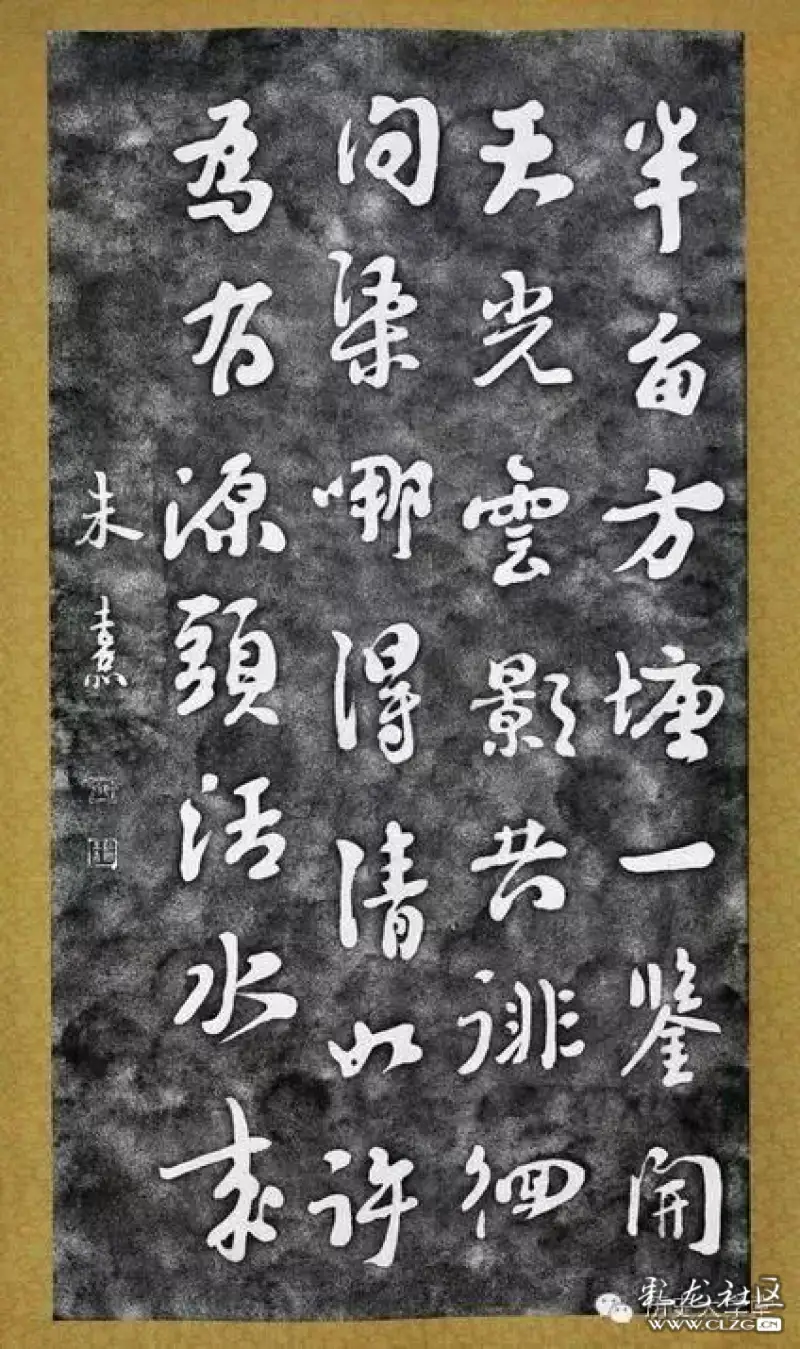 半畝方塘一鑒開
天光雲影共徘徊
问渠哪得清如许
為有源頭活水来
朱熹
彩龙社区
WWW.CLZG.CN